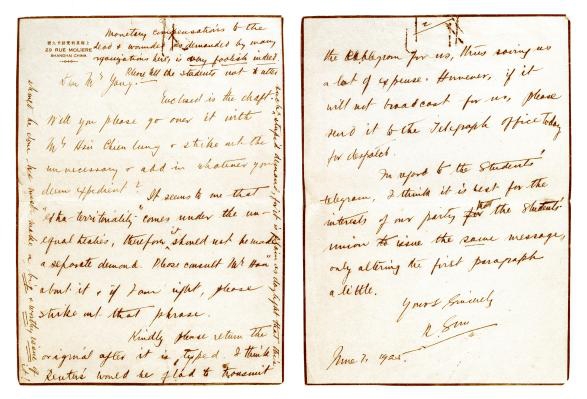 Monetary compensations to the
dead & wounded as demanded by many
organizations here, is very foolish indeed.
Please tell the students not to alter
上海莫利愛路廿九號
29 RUE MOLIERE
SHANGHAI CHINA
Dear Mr Yang.—
Enclosed is the draft.
Will you please go over it with
Mr Hsu Chien Lung & strike out the
unnecessary & add in whatever you
deem expedient?
It seems to me that
"Extra-territoriality" comes under the un-
equal treaties, therefore it should not be made
a separate demand. Please consult Mr
about it, & if I am right, please
strike out that phrase.
Kindly please return the
original after it is typed. I think
Reuters would be glad to transmit
such a stupid demand, for it is plain as day light that this
should be done
make a big & worthy issue of
2
the cablegram for us, thus saving us
a lot of expense. However, if it
will not broadcast for us, please
send it to the Telegraph office today
for despatch.
In regard to the Students'
telegram, I think it is best for the
interests of our party not for the Students'
union to issue the same message,
only altering the first paragraph
a little.
Yours Sincerely
R. Sun
June 7. 1925.